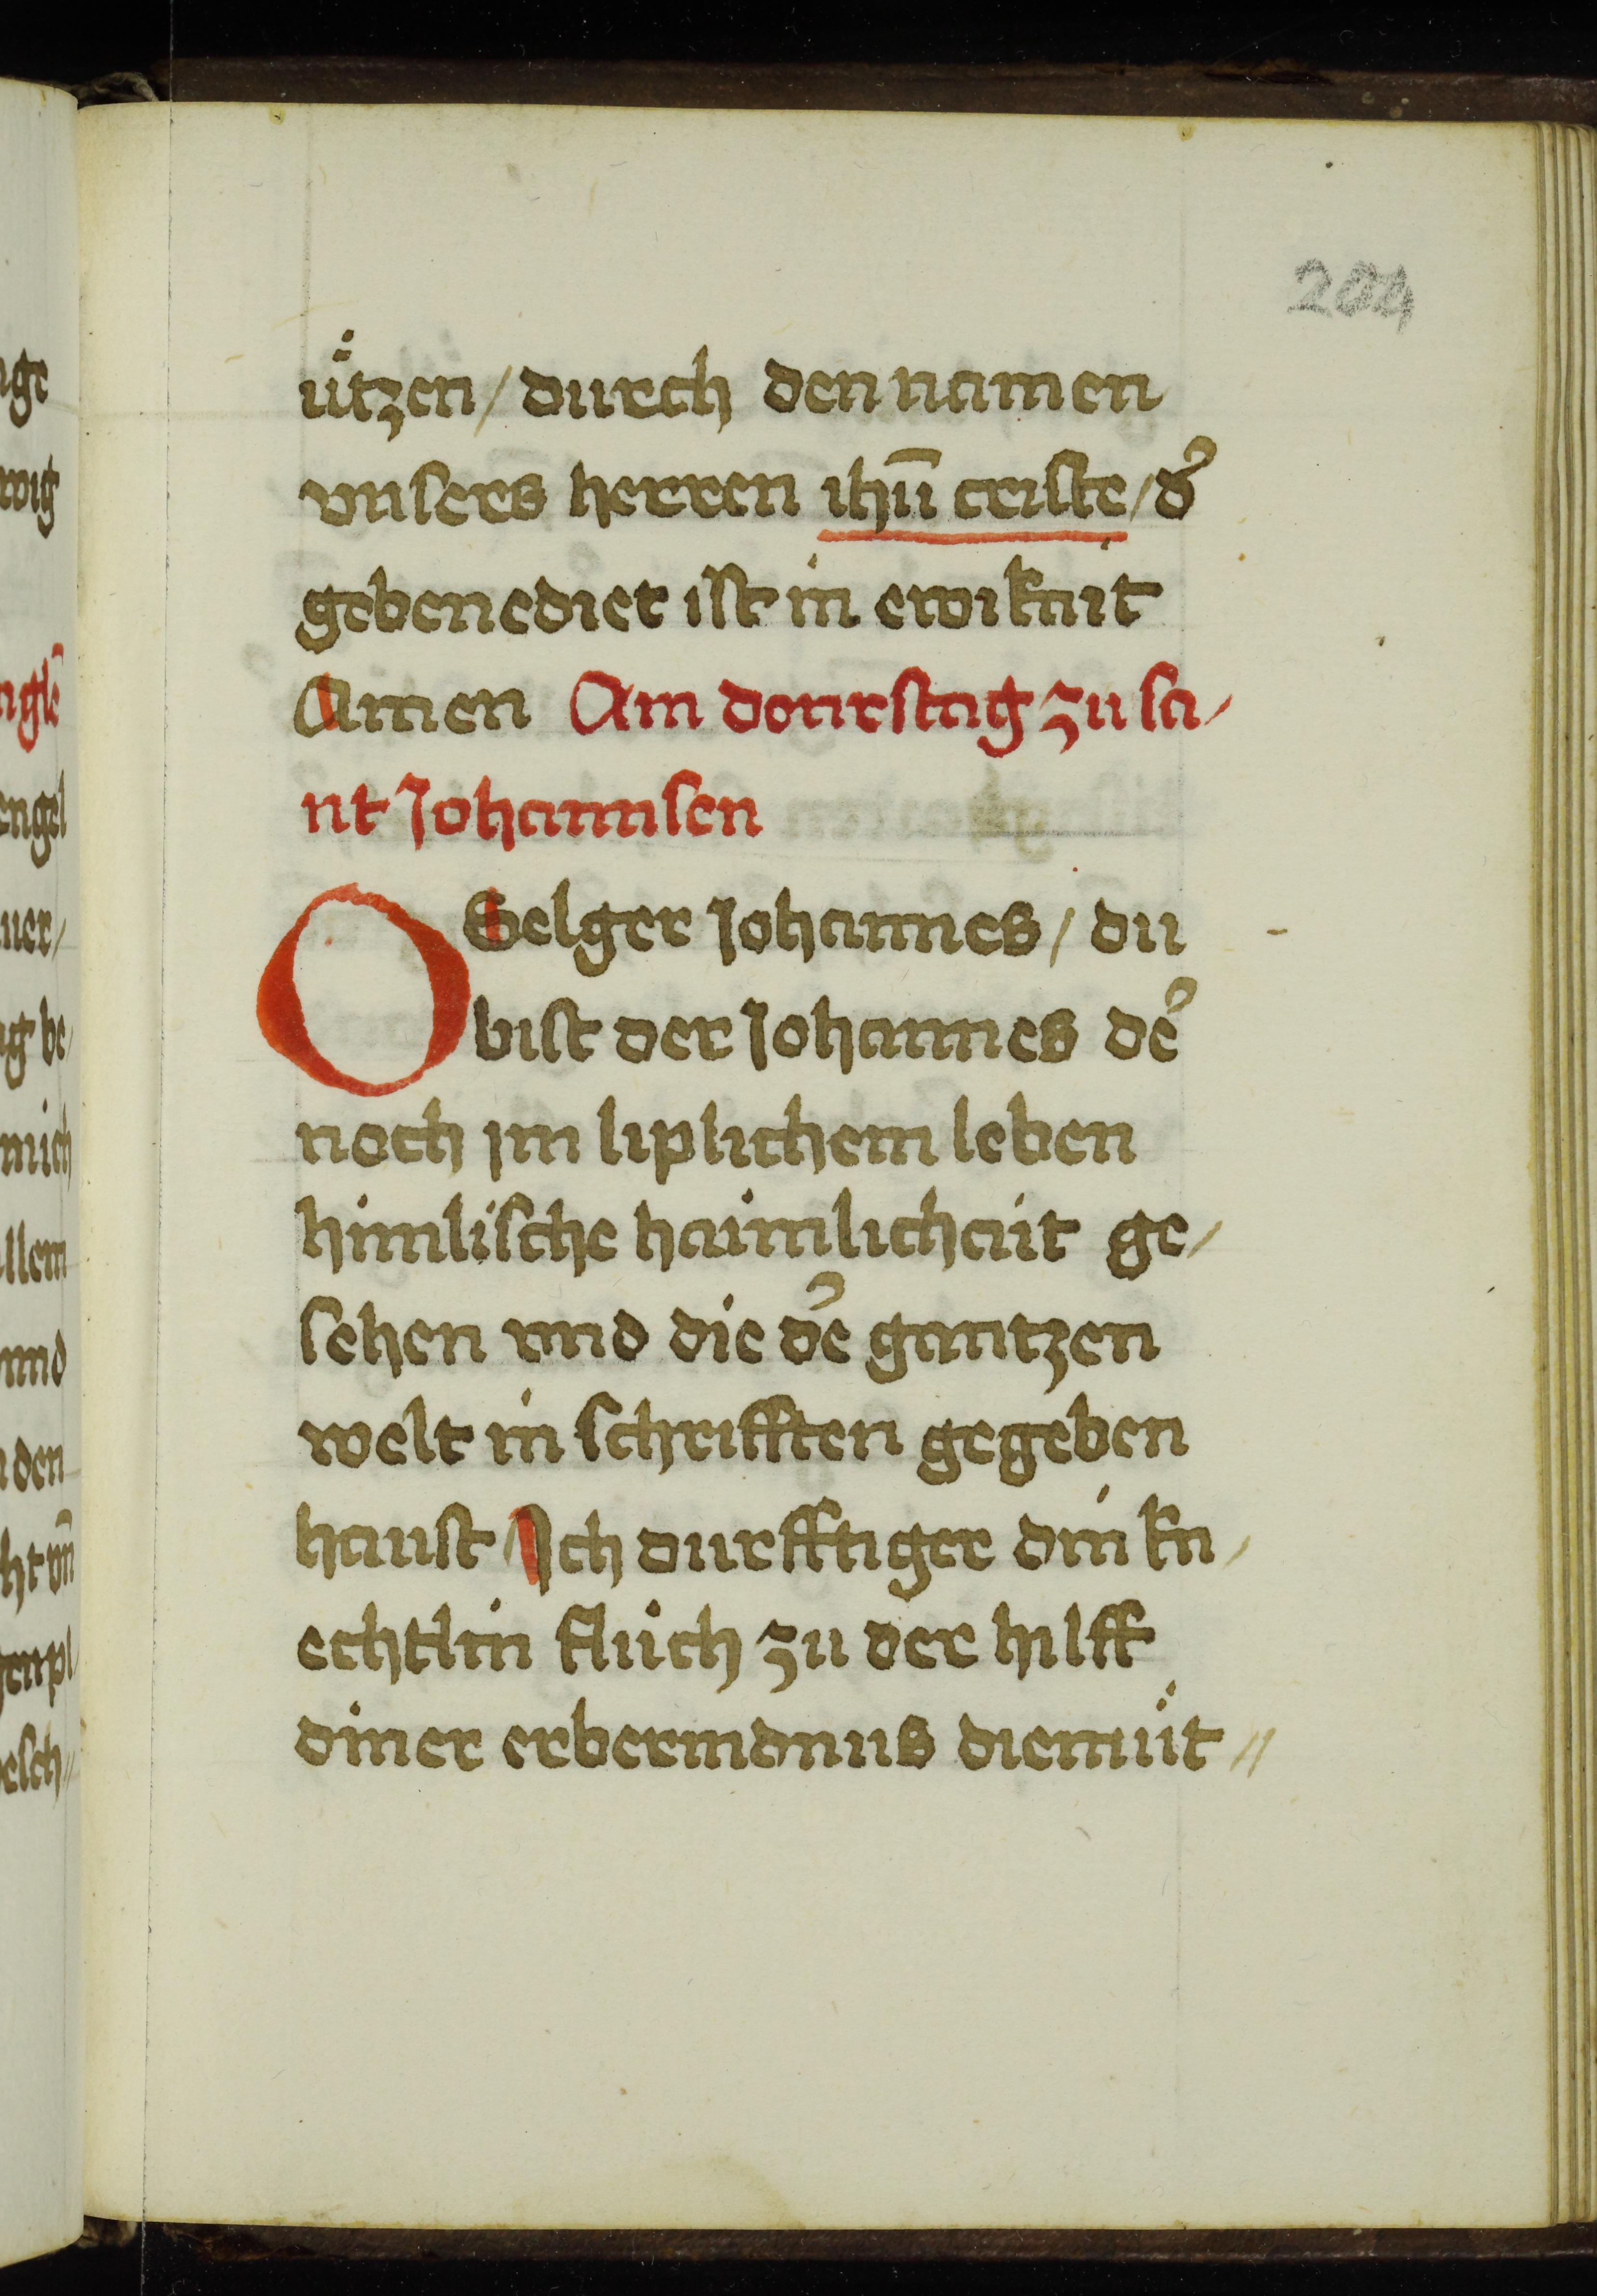 204
ützen / durch den namen
vnsers herren ihū criste / d᾽
gebenediet ist in ewikait
Amen Am donrstag zu sa /
nt Johannsen
O Selger Johannes / du
bist der Johannes de᾽
noch im liplichem leben
himlische haimlichait ge /
sehen vnd die de᾽ gantzen
welt in schrifften gegeben
haust / Ich durfftiger din kn /
echtlin flüch zu der hilff
diner erbermdnus diemüt //